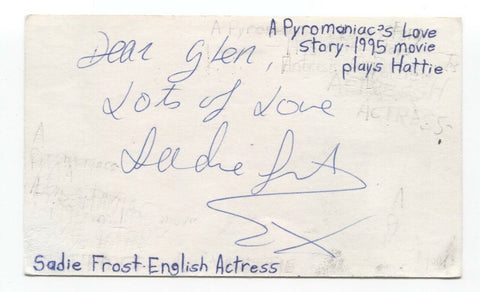 A Pyromaniac's Love
story-1995 movie
plays Hattie
Dear Glen,
Lots of Love
Sadie Frost
X
Sadie Frost-English Actress